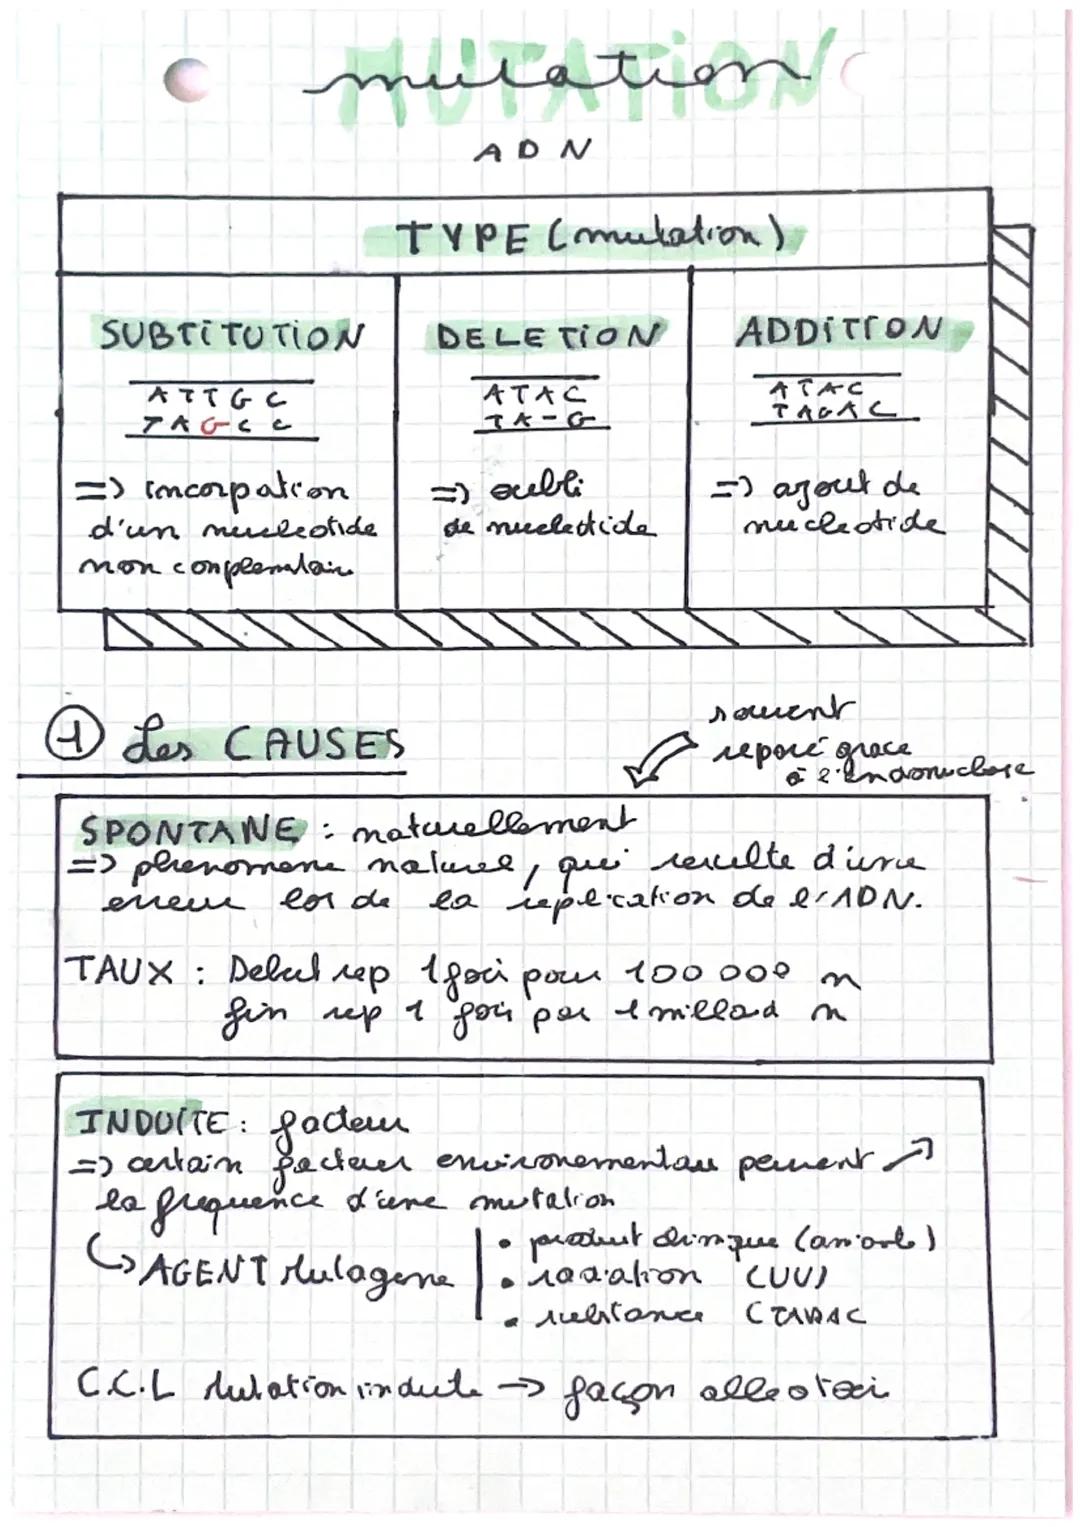 MUTATION
mutation
ADN
TYPE (mutation)
SUBTITUTION
ATTGC
TAGCC
=> incorpation
d'un nucleotide
non complementaire
DELETION
ATAC
TA-G
=> oubli
de nucleotide
ADDITION
ATAC
TAGAC
=> ajout de
nucleotide
1 Les CAUSES
souvent
reparé grace
à l'endonuclease
SPONTANE : naturellement
=> phenomene naturel, qui resulte d'une
erreur lors de la replication de l'ADN.
TAUX : Debut rep 1 foci pour 100 000 n
fin rep 1 fois par 1 millard n
INDUITE : facteur
=> certain facteur environementau peuvent ↗
la frequence d'une mutation
↳ AGENT Mutagene
• produit chimique (amiante)
• radiation (UV)
• substance (TABAC
C.C.L Mutation induite → façon